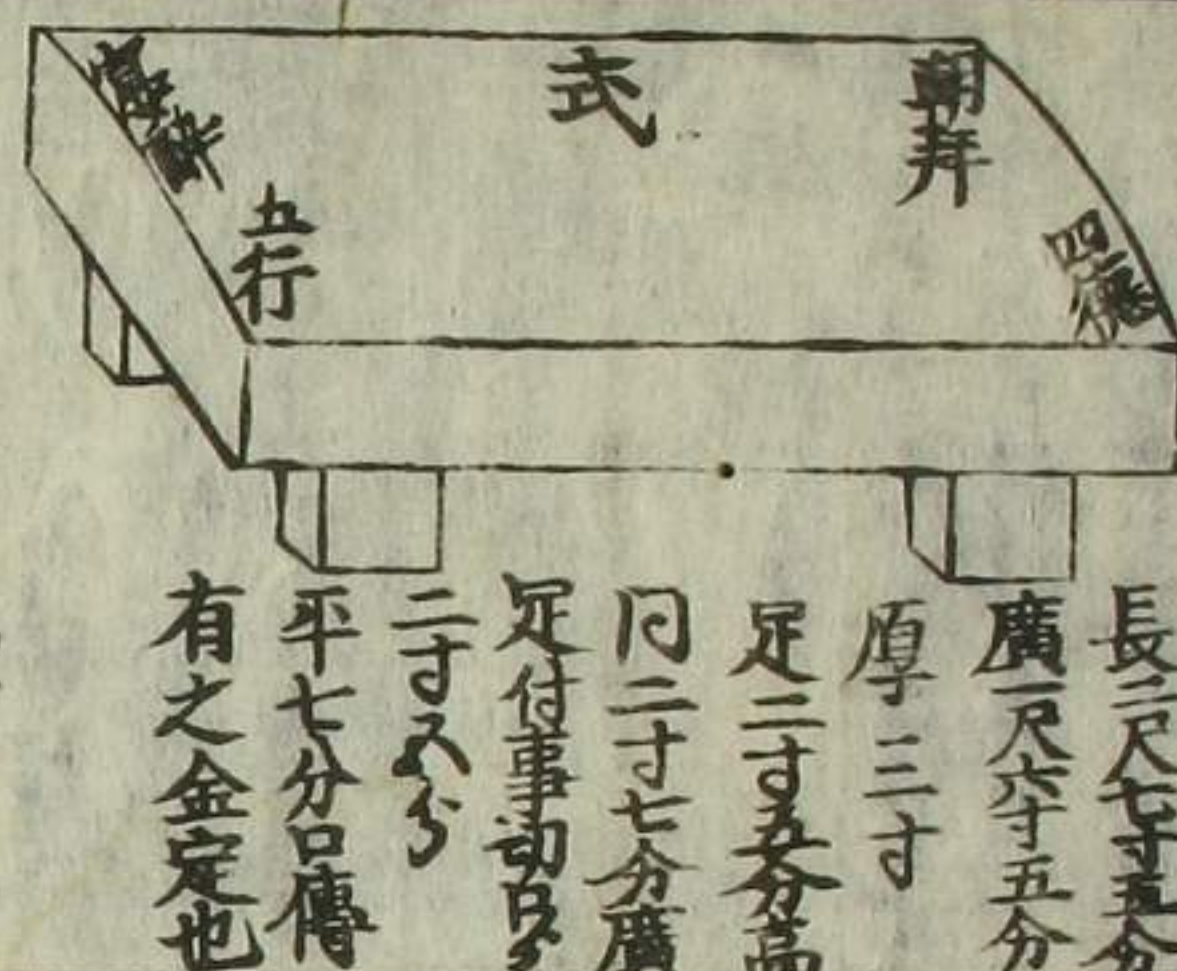 式
朝拝
四徳
五行
長二尺七寸五分
廣一尺六寸五分
厚三寸
足二寸五分高
同二寸七分廣
足付事動
二寸五分
平七分口傳
有之金定也